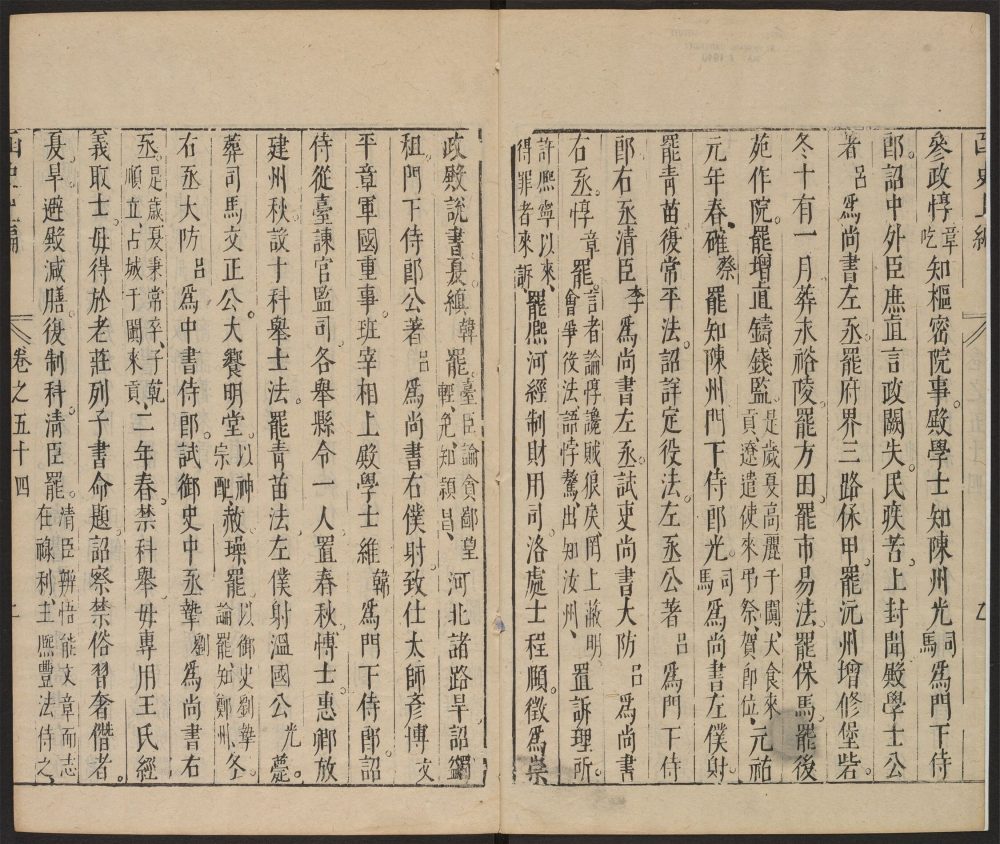 參政惇章吃知樞密院事殿學士知陳州光司馬爲門下侍
郎詔中外臣庶直言政闕失民疾苦上封聞殿學士公
著呂爲尚書左丞罷府界三路保甲罷沅州增修堡砦
冬十有一月葬永裕陵罷方田罷市易法罷保馬罷後
苑作院罷增直鑄錢監是歲夏高麗于闐大食來貢遼遣使來弔祭賀卽位元祐
元年春確蔡罷知陳州門下侍郎光司馬爲尚書左僕射
罷青苗復常平法詔詳定役法左丞公著呂爲門下侍
郎右丞清臣李爲尚書左丞試吏尚書大防呂爲尚書
右丞惇章罷言者論惇讒賊狠戾罔上蔽明會爭役法語悖驁出知汝州置訴理所
許熙寧以來得罪者來訴罷熙河經制財用司洛處士程頤徵爲崇
政殿說書夏縝韓罷臺臣論貪鄙望輕免知潁昌河北諸路旱詔蠲
租門下侍郎公著呂爲尚書右僕射致仕太師彥博文
平章軍國重事班宰相上殿學士維韓爲門下侍郎詔
侍從臺諫官監司各舉縣令一人置春秋博士惠卿放
建州秋設十科舉士法罷青苗法左僕射溫國公光薨
葬司馬文正公大饗明堂以神宗配赦璪罷以御史劉摯論罷知鄭州冬
右丞大防呂爲中書侍郎試御史中丞摯劉爲尚書右
丞是歲夏秉常卒子乾順立占城于闐來貢二年春禁科舉毋專用王氏經
義取士毋得於老莊列子書命題詔察禁俗習奢僭者
夏旱避殿減膳復制科清臣罷清臣辨悟能文章而志在祿利主熙豐法侍之
卷之五十四